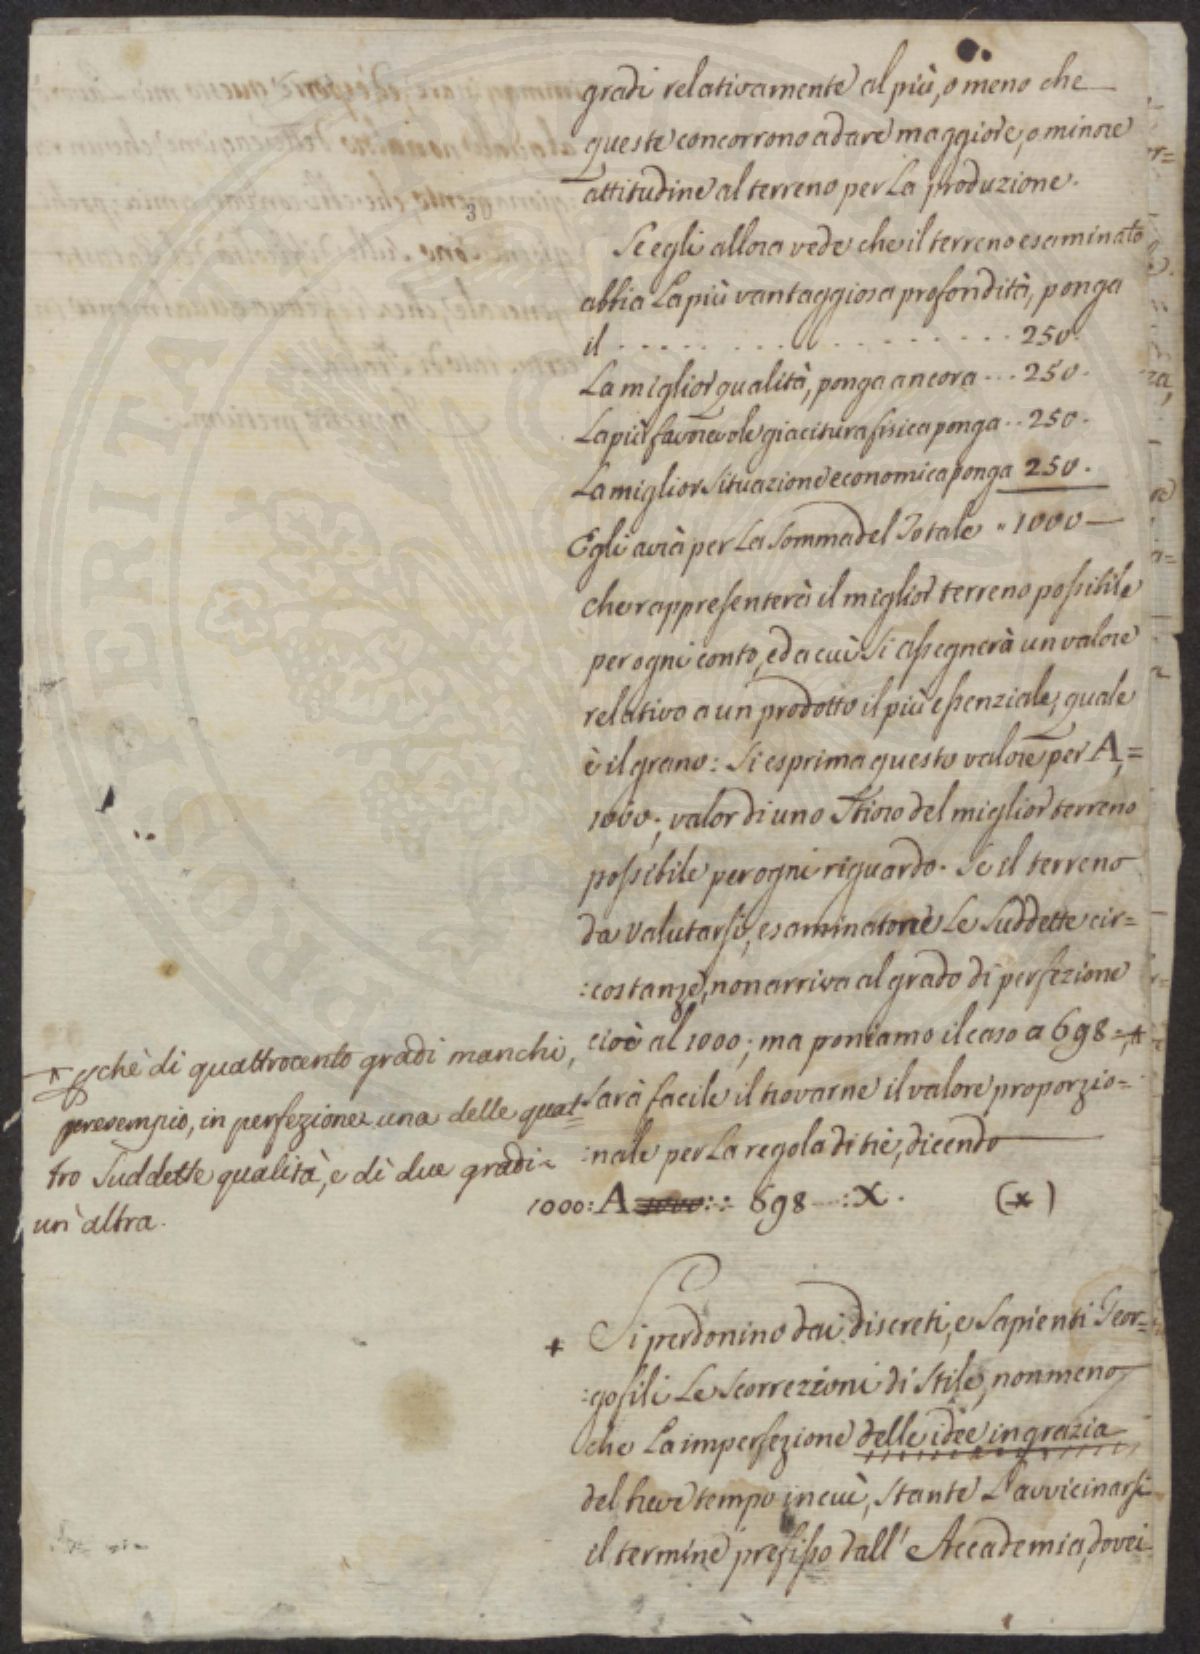 gradi relativamente al più, o meno che
queste concorrono a dare maggiore, o minore
attitudine al terreno per la produzione.
Se egli allora vede che il terreno esaminato
abbia la più vantaggiosa profondità, ponga
il . . . . . . . . . . . . . . . . 250.
La miglior qualità, ponga ancora . . . 250.
La più favorevole giacitura fisica ponga . . 250.
La miglior situazione economica ponga 250.
Egli avrà per la somma del Totale " 1000 —
che rappresenterà il miglior terreno possibile
per ogni conto, ed a cui si assegnerà un valore
relativo a un prodotto il più essenziale, quale
è il grano: Si esprima questo valore per A, =
1000; valor di uno Stioro del miglior terreno
possibile per ogni riguardo. Se il terreno
da valutarsi, esaminatone le suddette cir=
:costanze, non arriva al grado di perfezione
cioè al 1000; ma poniamo il caso a 698 =, +
sarà facile il trovarne il valore proporzio=
:nale per la regola di trè, dicendo
1000: A 1000:: 698 —: X. (x)
+ Si perdonino dai discreti, e Sapienti Geor=
:gofili le scorrezzioni di Stile, non meno
che la imperfezione delle idee in grazia
del breve tempo in cui, stante l'avvicinarsi
il termine prefisso dall' Accademia, dovei
30
+ chè di quattrocento gradi manchi,
per esempio, in perfezione una delle quat=
tro suddette qualità, e di due gradi
un' altra.
PROSPERITATI PUBLICAE